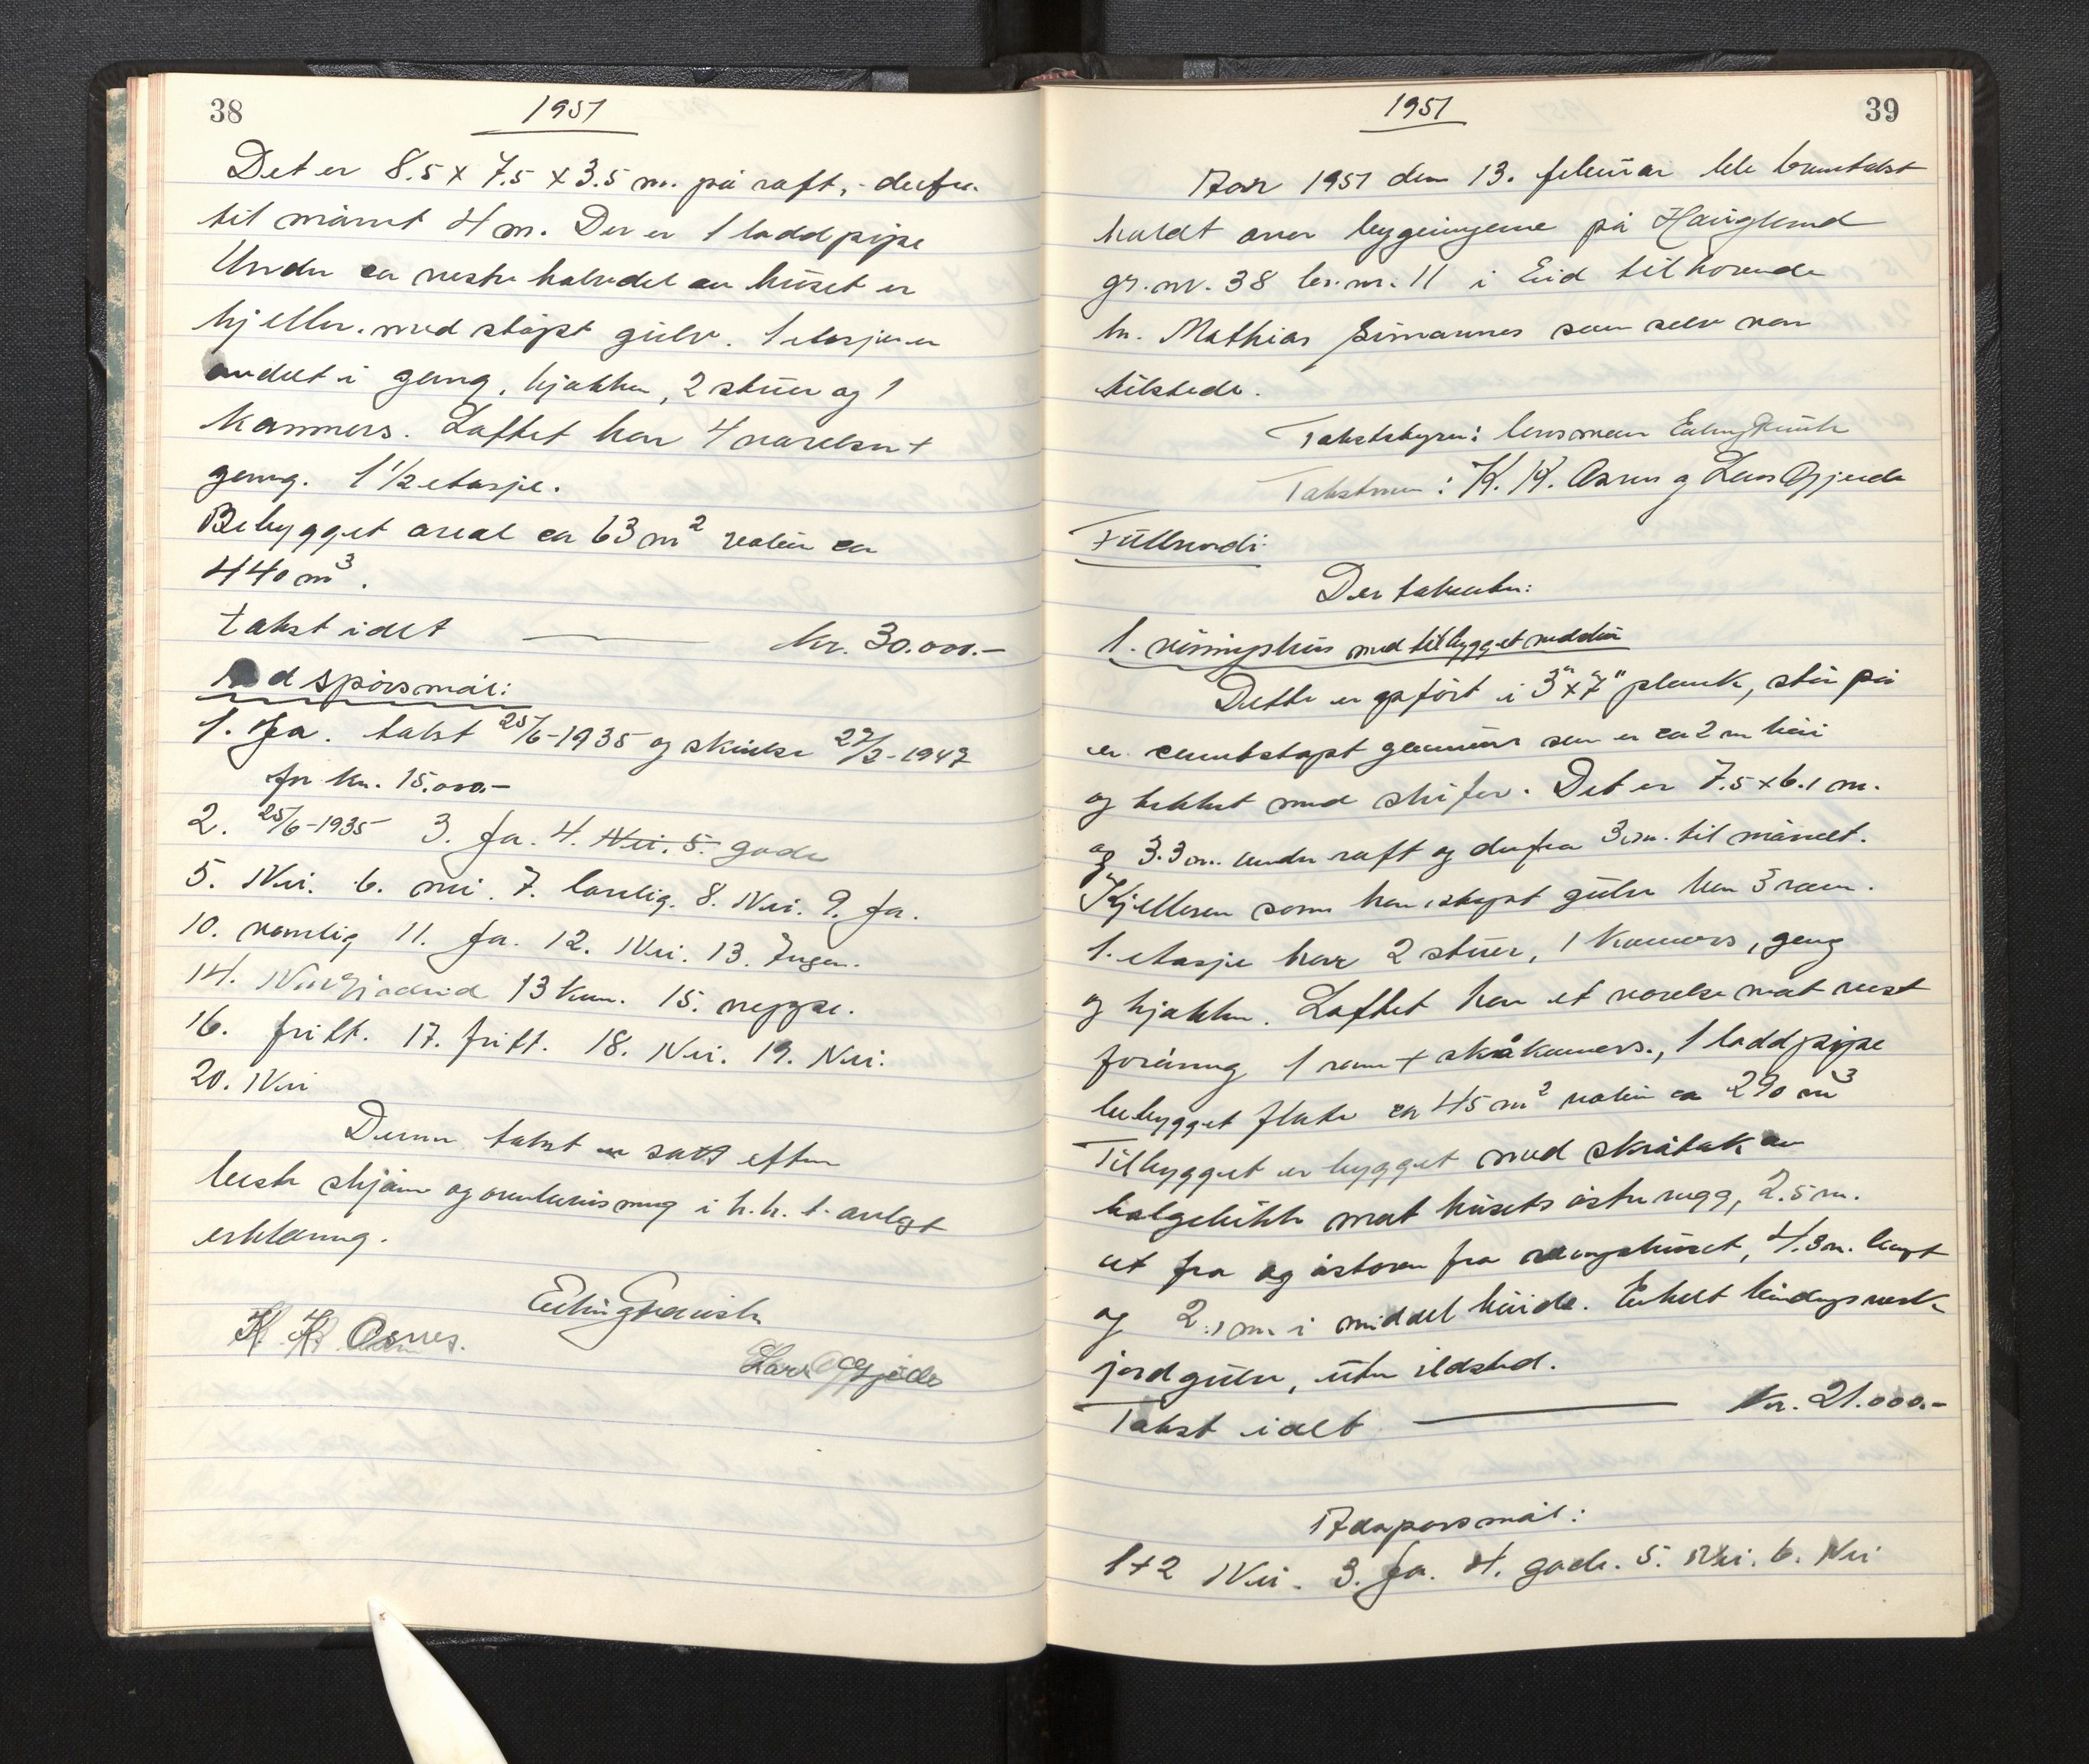 38
1951
Det er 8.5 x 7.5 x 3.5 m. på raft, - derfra
til mønet 4 m. Der er 1 ladd pipe
Under ca vestre halvdel av huset er
kjeller. med støpt gulv. 1 etasje er
inndelt i gang, kjøkken, 2 stuer og 1
kammers. Loftet har 4 værelser +
gang. 1 1/2 etasje.
Bebygget areal ca 63 m² volum ca
440 m³.
takst i alt — kr. 30.000.-
Ad spørsmål:
1. Ja. takst 25/6-1935 og skinke 22/2-1947
for kr. 15.000.-
2. 25/6-1935 3. Ja. 4. Nei. 5. gode
5. Nei. 6. nei. 7. lovlig. 8. Nei. 9. Ja.
10. vanlig 11. Ja. 12. Nei. 13. Ingen.
14. 13 km. 15. neppe.
16. fritt. 17. fritt. 18. Nei. 19. Nei.
20. Nei
Denne takst er satt efter
beste skjønn og overbevisning i h.h. t. avlagt
erklæring.
K. K. Aarnes.
39
1951
År 1951 den 13. februar ble branntakst
holdt over bygningene på Hauglund
gr. nr. 38 br. nr. 11 i Eid tilhørende
hr. Mathias som selv var
tilstede.
Takstbestyrer: lensmann
Takstmenn: K. K. Aarnes og Lars Gjerde
Fullverdi
Der takseres:
1. våningshus med tilbygget vedskur
Dette er oppført i 3" x 7" plank, står på
en sementstøpt grunnmur som er ca 2 m høi
og tekket med skifer. Det er 7.5 x 6.1 m.
og 3.3 m. under raft og derfra 3 m. til mønet.
Kjelleren som har støpt gulv har 3 rom.
1. etasje har 2 stuer, 1 kammers, gang
og kjøkken. Loftet har et værelse mot vest
forøvrig 1 rom + skåkammers., 1 ladd pipe
bebygget flate ca 45 m² volum ca 290 m³
Tilbygget er bygget med skråtak av
bølgeblikk mot husets østre vegg, 2.5 m.
ut fra og østover fra våningshuset, 4.3 m. langt
og 2.1 m. i middel høide. Enkelt bindingsverk
jordgulv, uten ildsted.
Takst i alt — Kr. 21.000.-
Ad spørsmål:
1+2 Nei. 3. Ja. 4. gode. 5. Nei. 6. Nei